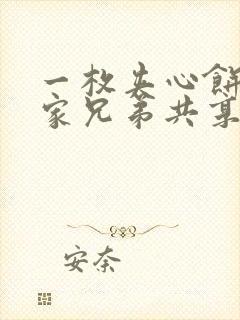 一枚夹心餅
家兄弟共享
安奈